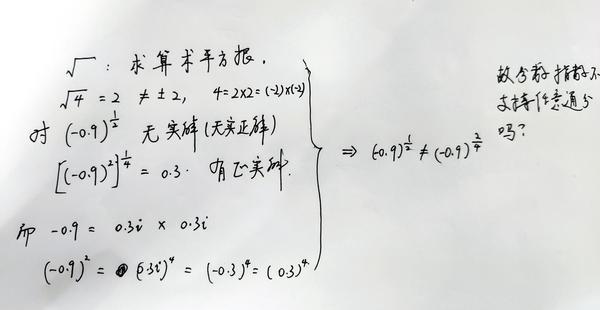 √ : 求算术平方根.
√4 = 2 ≠ ±2, 4=2×2=(-2)×(-2)
对 (-0.9)^{1/2} 无实解(无实正解)
[(-0.9)^2]^{1/4} = 0.3. 有正实解.
而 -0.9 = 0.3i × 0.3i
(-0.9)^2 = (0.3i)^4 = (-0.3)^4 = (0.3)^4
⇒ (-0.9)^{1/2} ≠ (-0.9)^{2/4}
故分数指数不
支持任意通分
吗?